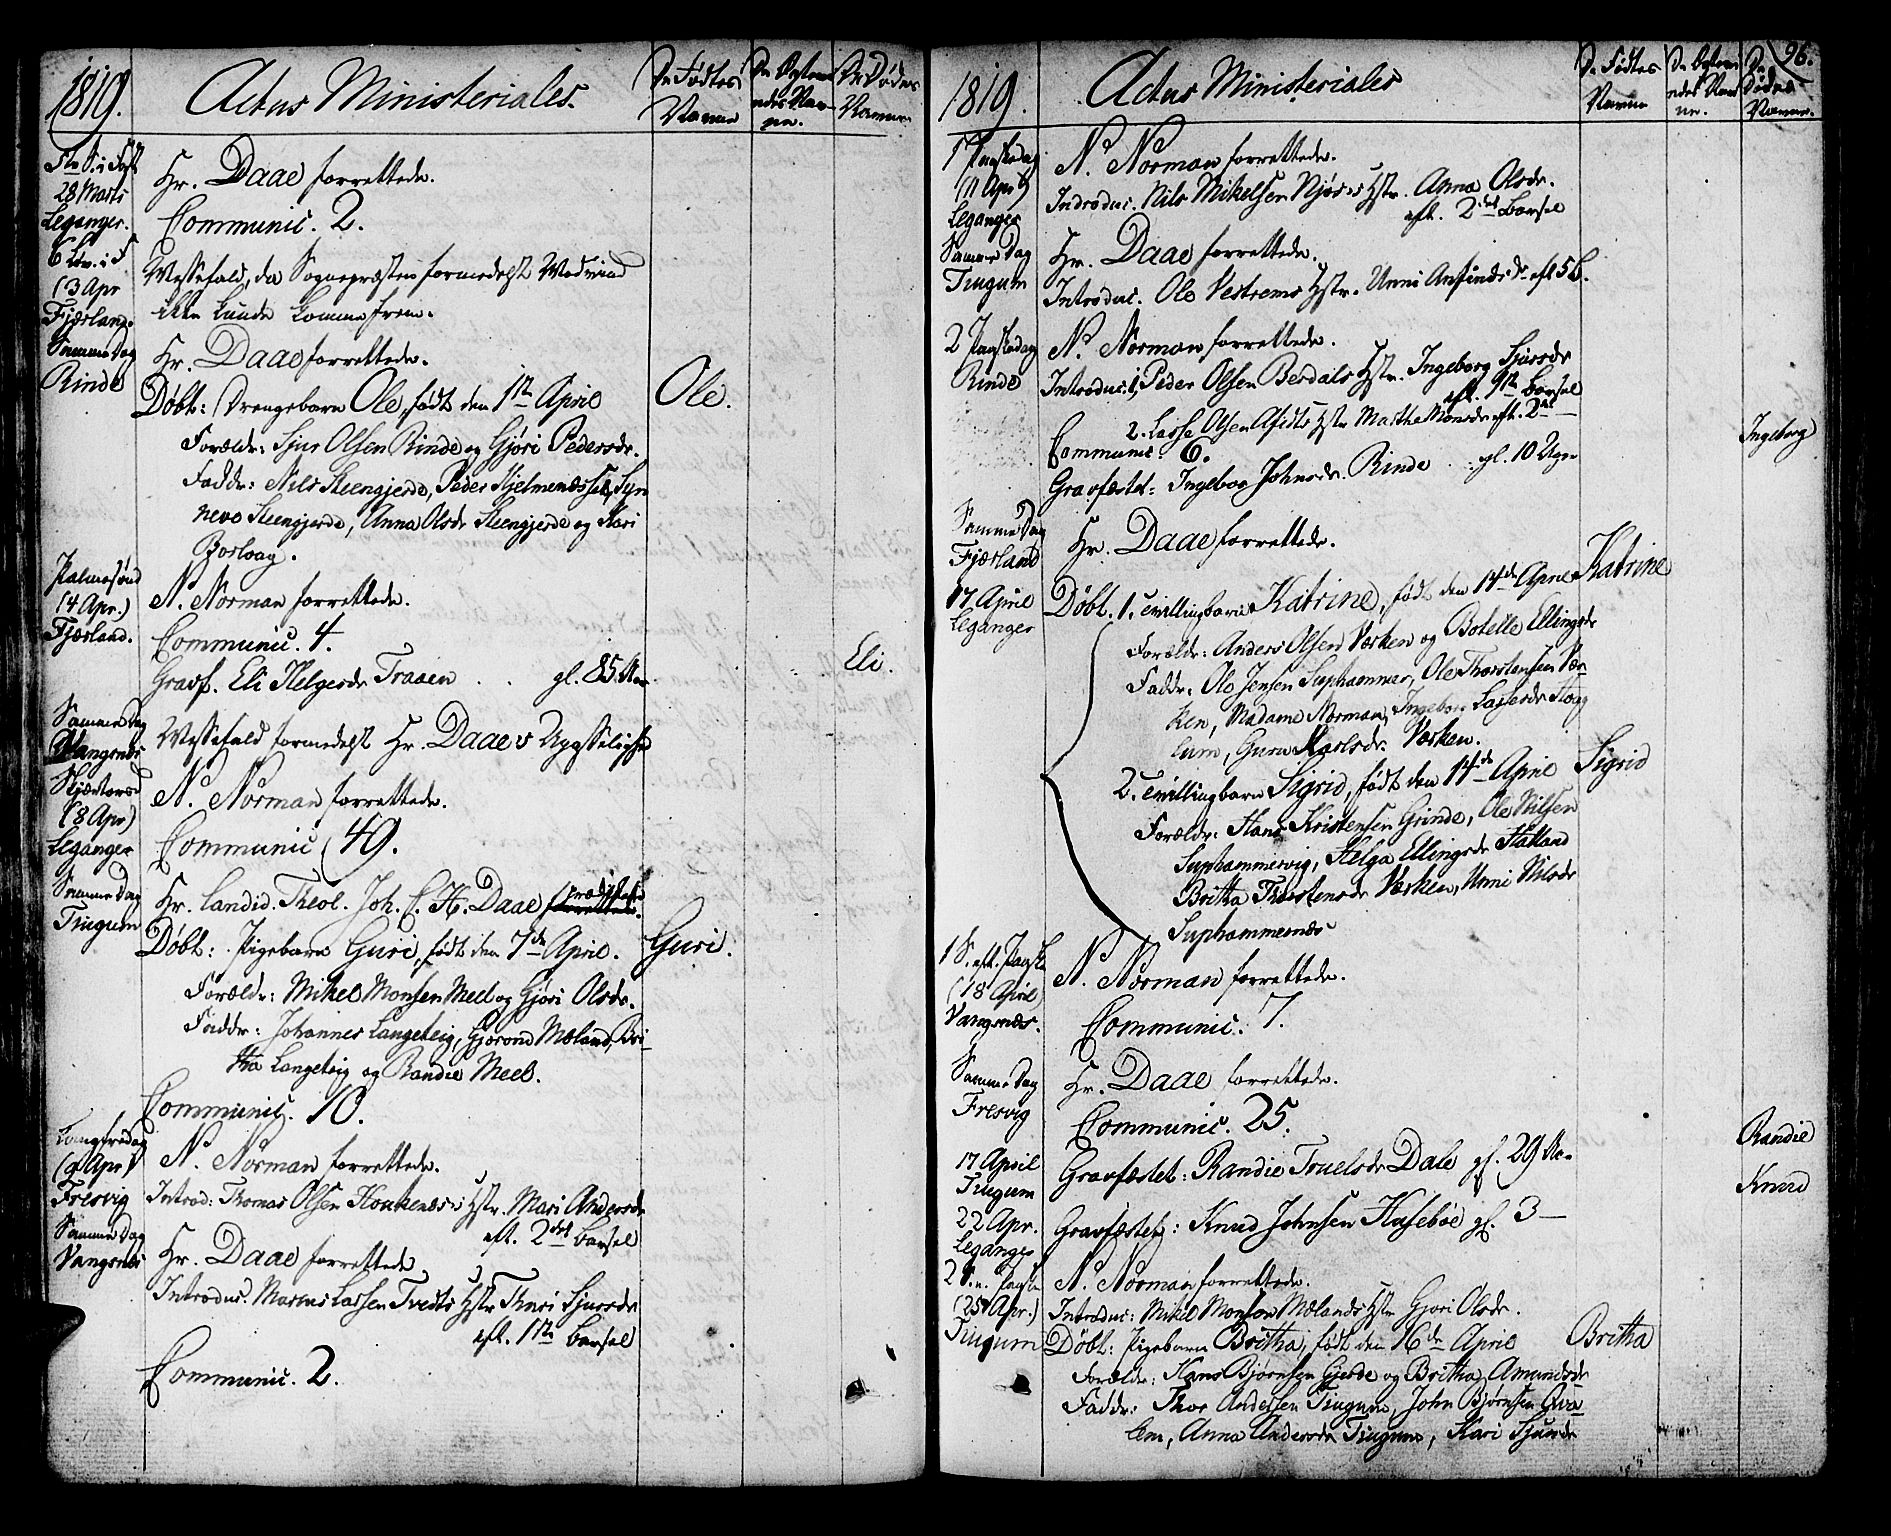 1819. Actus Ministeriales. De Fødtes Navne De Egtevi
endes Nav-
ne. De Dødes
Navne
5te S. i Fast
28 Marts
Leganger.
Hr. Daae forrettede.
Communic. 2.
6 Løv. i F
(3 Apr
Fjærland.
Messefald, da Sognepræsten formedelst Modvind
ikke kunde komme frem.
Samme Dag
Rinde
Hr. Daae forrettede.
Døbt: Drengebarn Ole, født den 1ste April Ole.
Forældr: Sjur Olsen Rinde og Gjøri Pedersdr.
Faddr: Nils Steengjerde, Peder Hjelmenæsset, Syn
neve Steengjerde, Anna Olsdr Steengjerde og Kari
Borlaag.
Palmesønd
(4 Apr.)
Fjærland.
N. Norman forrettede.
Communic. 4.
Gravf. Eli Helgesdr Traaen . . gl. 85 Aar Eli.
Samme Dag
Vangsnæs
Messefald formedelst Hr. Daaes Upasselighed
Skjærtorsd
(8 Apr)
Leganger
N. Norman forrettede.
Communic 49.
Samme Dag
Tiugum
Hr. Candid. Theol. Joh. C. H. Daae prædikede
forrettede.
Døbt: Pigebarn Guri, født den 7de April. Guri.
Forældr: Mikel Monsen Meel og Gjøri Olsdr.
Faddr: Johannes Langeteig, Gjørond Mæland, Bri-
tha Langeteig og Randie Meel.
Communic. 10.
Langfredag
(9 Apr)
Fresvig
N. Norman forrettede.
Introd: Thomas Olsen Houkenæs's Hstr. Mari Andersdr
eft. 2det Barsel
Samme Dag
Vangsnæs
Hr. Daae forrettede
Introduc. Marcus Lassen Tvedts Hstr Thuri Sjursdr
eft. 1ste Barsel
Communic. 2.
96.
1819. Actus Ministeriales De Fødtes
Navne De Egtevi
endes Nav
ne. De
Dødes
Navne.
1 Paaskedag
(11 Apr)
Leganger
N. Norman forrettede.
Introduc. Nils Mikelsen Njøs's Hstr. Anna Olsdr.
eft. 2det Barsel
Samme Dag
Tiugum
Hr. Daae forrettede.
Introduc. Ole Vestrems Hstr. Unni Anfindsdr eft 5 B.
2 Paaskedag
Rinde
N. Norman forrettede.
Introduc. 1, Peder Olsen Berdals Hstr. Ingeborg Sjursdr
eft. 9de Barsel
2. Lasse Olsen Afdts Hstr Marthe Monsdr eft. 2det —
Communic 6.
Gravfæstet: Ingebor Johnsdr. Rinde . . gl. 10 Uger Ingeborg
Samme Dag
Fjærland
Hr. Daae forrettede.
17 April
Leganger
Døbt. 1. Tvillingbarn Katrine, født den 14de April Katrine
Forældr: Anders Olsen Værken og Botelle Ellingsdr
Faddr: Ole Jensen Suphammer, Ole Thorstensen Vær
ken, Madame Norman, Ingebor Lassesdr Houg
lum, Guru Karlsdr. Værken.
2. Tvillingbarn Sigrid, født den 14de April Sigrid
Forældr: Hans Kristensen Grinde, Ole Nilsen
Suphammervig, Helga Ellingsdr Hatland
Britha Thorstensdr Værken, Unni Nilsdr
Suphammernæs
1 S. eft. Paaske
(18 April)
Vangsnæs.
N. Norman forrettede.
Communic. 7.
Samme Dag
Fresvig
Hr. Daae forrettede.
Communic. 25.
17 April
Tiugum
Gravfæstet: Randie Truelsdr Dale gl. 29 Aar Randie
22 Apr.
Leganger
Gravfæstet: Knud Johnsen Husebøe gl. 3 — Knud
2 S. e. Paaske
(25 Apr.)
Tiugum
N. Norman forrettede.
Introduc: Mikel Monsen Mælands Hstr Gjøri Olsdr.
Døbt: Pigebarn Britha, født den 16de April Britha
Forældr: Hans Bjørnsen Gjerde og Britha Amundsdr
Faddr: Thor Andersen Tiugum, John Bjørnsen Qva
lem, Anna Andersdr Tiugum, Kari Sjursdr